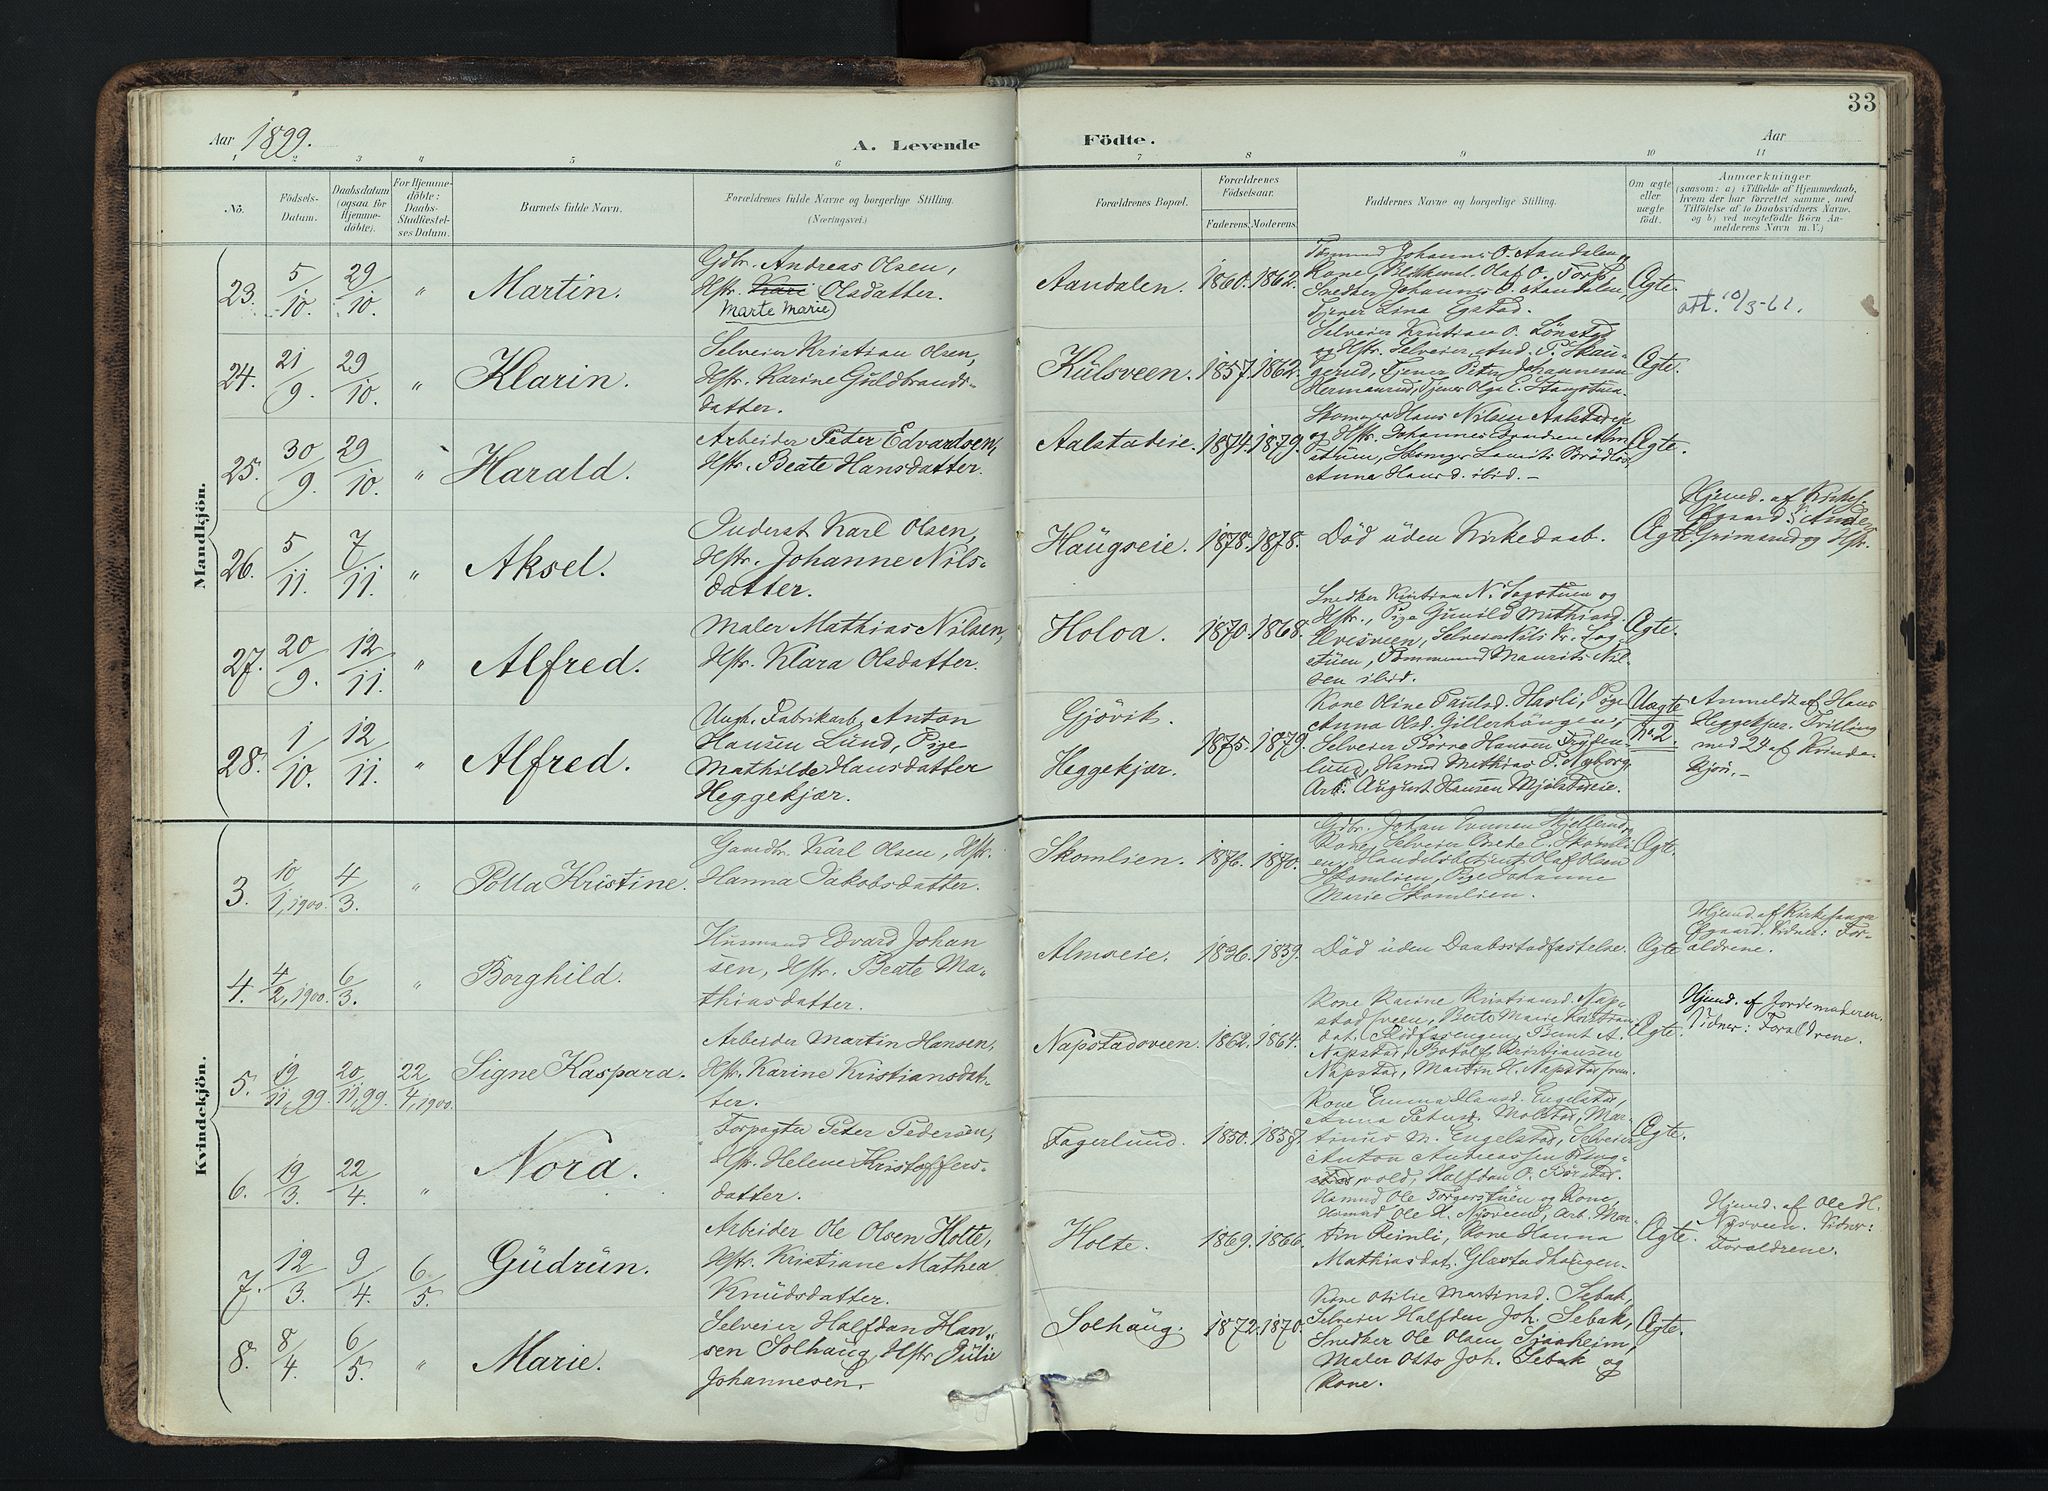 33
Aar 1899.
A. Levende Födte.
Aar
1 2 3 4 5 6 7 8 9 10 11
No.
Födsels-
Datum.
Daabsdatum
(ogsaa for
Hjemme-
döbte).
For Hjemme-
döbte:
Daabs-
Stadfæstel-
ses Datum.
Barnets fulde Navn.
Forældrenes fulde Navne og borgerlige Stilling.
(Næringsvei.)
Forældrenes Bopæl.
Forældrenes
Födselsaar.
Faderens. Moderens.
Faddernes Navne og borgerlige Stilling.
Om ægte
eller
uægte
födt.
Anmærkninger
(saasom: a) i Tilfælde af Hjemmedaab,
hvem der har forrettet samme, med
Tilföielse af to Daabsvidners Navne,
og b) ved uægtefödte Börn An-
melderens Navn m. V.)
Mandkjön.
23. 5/10. 29/10. " Martin.
Gdbr. Andreas Olsen,
Hstr. Kari Olsdatter.
Marte Marie
Aandalen. 1860. 1862.
Johannes O. Aandalen,
Kone Olaf O. Torp,
Snedker Johannes O. Aandalen,
Tjener Lina Egstad.
Ægte.
att. 10/3-61.
24. 21/9. 29/10. " Klarin.
Selveier Kristian Olsen,
Hstr. Karine Guldbrands-
datter.
Külsveen. 1857. 1862.
Selveier Kristian O. Lönstad
og Hstr. Selveier And. P. Skau-
gerud, Tjener Peter Johannesen
Hermanrud, Tjener Olga E. Stangstuen.
Ægte.
25. 30/9. 29/10. " Harald.
Arbeider Peter Edvardsen,
Hstr. Beate Hansdatter.
Aalstadeie. 1874. 1879.
Skomager Hans Nilsen Aalstadeie
og Hstr. Johannes Edvardsen Alm-
Anna Hansd. ibid.-
Ægte.
26. 5/11. 7/11. " Aksel.
Inderst Karl Olsen,
Hstr. Johanne Nils-
datter.
Haugseie. 1878. 1878.
Död üden Kirkedaab.
Ægte.
Hjemd. af Kirkes.
Grimsrud og Hstr.
27. 20/9. 12/11. " Alfred.
Maler Mathias Nilsen,
Hstr. Klara Olsdatter.
Holoa. 1870. 1868.
Snedker Kristian N. Sagstuen og
Hstr., Pige Gunild Mathiasd.
Kvisveen, Selveier Nils Kr. Sag-
stüen, Tommermand Maurits Nil-
sen ibid.
Ægte.
28. 1/10. 12/11. " Alfred.
Ungk. Fabrikarb. Anton
Hansen Lünd, Pige
Mathilde Hansdatter
Heggekjær.
Gjövik.
Heggekjær.
1875. 1879.
Kone Oline Paulsd. Hasli, Pige
Anna Olsd. Gillerhaugen,
Selveier Börre Hansen Tryden-
lund, Hsmd Mathias P. Nyborg,
Arb. August Hansen Mjölstadeie.
Uægte
No 2
Anmeldt af Hans
Heggekjær. Tvilling
med 24 af Kvinde-
kjön.-
Kvindekjön.
3. 10/1, 1900. 4/3. " Polla Kristine.
Gaardbr. Karl Olsen, Hstr.
Hanna Jakobsdatter.
Skomlien. 1876. 1870.
Gdbr. Johan Evensen Kjellerud,
Kone, Selveier Enede E. Skomli-
en, Handelsbetjent Olaf Olsen
Skomlien, Pige Johanne
Marie Skomlien.
Ægte.
4. 4/2, 1900. 6/3. " Borghild.
Husmand Edvard Johan
sen, Hstr. Beate Ma-
thiasdatter.
Almseie. 1836. 1839.
Död uden Daabsstadfæstelse.
Ægte
Hjemd. af Kirkesanger
Ösgaard. Vidner: For-
ældrene.
5. 19/11, 99. 20/11, 99. 22/4, 1900. Signe Kaspara.
Arbeider Martin Hansen,
Hstr. Karine Kristiansdat-
ter.
Napstadsveen. 1862. 1864.
Kone Karine Kristiansd. Nap-
stadsveen, Berte Marie Kristians-
dat. Bernt A.
Napstad, Botolf Kristiansen
Napstad, Martin H. Napstadsveen.
Ægte.
Hjemd. af Jordemoderen.
Vidner: Foraldrene.
6. 19/3. 22/4. " Nora.
Forpagter Peter Pedersen,
Hstr. Helene Kristoffers-
datter.
Fagerlund. 1850. 1857.
Kone Emma Hansd. Engelstad,
Anna Petersd. Molstad, Mar-
tinus M. Engelstad, Selveier
Anton Andreassen Ring-
vold, Halfdan O. Börstad.
Ægte.
7. 12/3. 9/4. 6/5. Güdrün.
Arbeider Ole Olsen Holte,
Hstr. Kristiane Mathea
Knüdsdatter.
Holte. 1869. 1866.
Hsmnd Ole Torgerstüen og Kone,
Hsmnd Ole H. Nysveend, Arb. Mar-
tin Reimli, Kone Hanna
Mathiasdat. Glæstadhaugen.
Ægte.
Hjemd. af Ole H.
Nysveen. Vidner:
Forældrene.
8. 8/4. 6/5. " Marie.
Selveier Halfdan Han-
sen Solhaug, Hstr. Jülie
Johannesen.
Solhaug. 1872. 1870.
Kone Otilie Martinsd. Sebak,
Selveier Halfdan Joh. Sebak,
Snedker Ole Olsen Sjaaheim,
Maler Otto Joh. Sebak og
Kone.
Ægte.